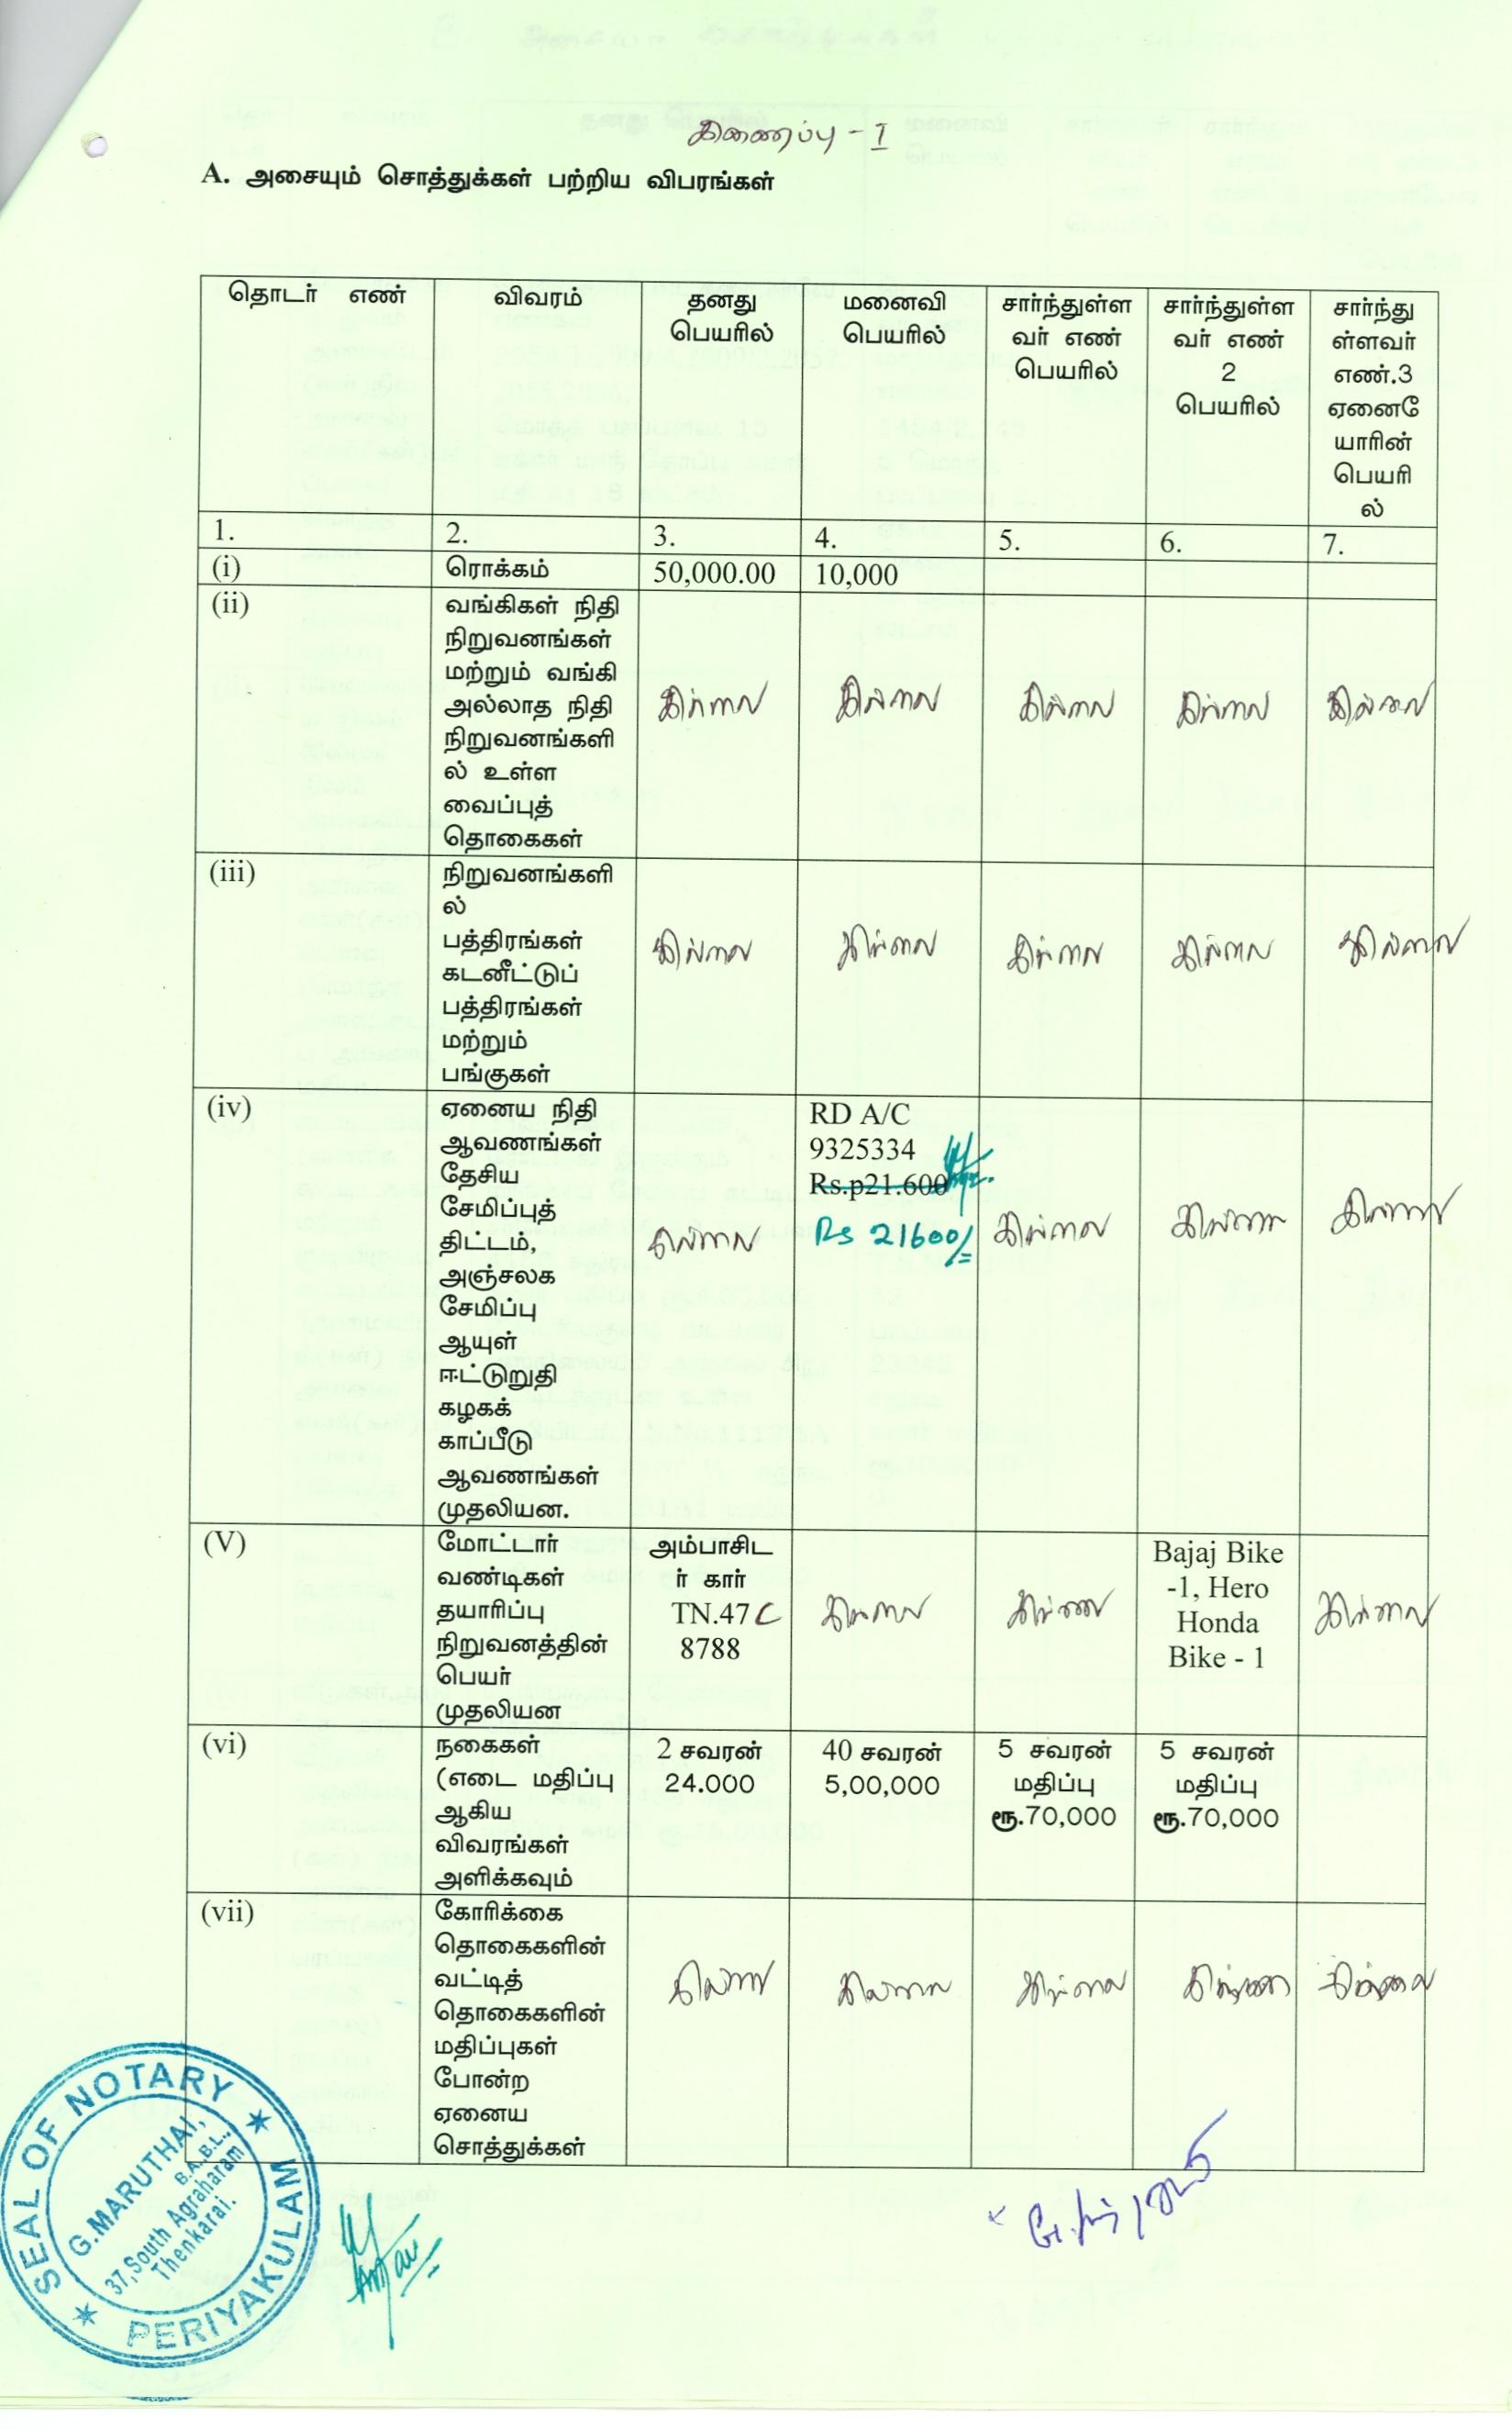 இணைப்பு - I
A. அசையும் சொத்துக்கள் பற்றிய விபரங்கள்
தொடர் எண்
விவரம்
தனது
பெயரில்
மனைவி
பெயரில்
சார்ந்துள்ள
வர் எண்
பெயரில்
சார்ந்துள்ள
வர் எண்
2
பெயரில்
சார்ந்து
ள்ளவர்
எண்.3
ஏனைே
யாரின்
பெயரி
ல்
1. 2. 3. 4. 5. 6. 7.
(i) ரொக்கம் 50,000.00 10,000
(ii)
வங்கிகள் நிதி
நிறுவனங்கள்
மற்றும் வங்கி
அல்லாத நிதி
நிறுவனங்களி
ல் உள்ள
வைப்புத்
தொகைகள்
இல்லை இல்லை இல்லை இல்லை இல்லை
(iii)
நிறுவனங்களி
ல்
பத்திரங்கள்
கடனீட்டுப்
பத்திரங்கள்
மற்றும்
பங்குகள்
இல்லை இல்லை இல்லை இல்லை இல்லை
(iv)
ஏனைய நிதி
ஆவணங்கள்
தேசிய
சேமிப்புத்
திட்டம்,
அஞ்சலக
சேமிப்பு
ஆயுள்
ஈட்டுறுதி
கழகக்
காப்பீடு
ஆவணங்கள்
முதலியன.
இல்லை
RD A/C
9325334
Rs.p21.600
Rs 21600/=
இல்லை இல்லை இல்லை
(V)
மோட்டார்
வண்டிகள்
தயாரிப்பு
நிறுவனத்தின்
பெயர்
முதலியன
அம்பாசிட
ர் கார்
TN.47 C
8788
இல்லை இல்லை
Bajaj Bike
-1, Hero
Honda
Bike - 1
இல்லை
(vi)
நகைகள்
(எடை மதிப்பு
ஆகிய
விவரங்கள்
அளிக்கவும்
2 சவரன்
24.000
40 சவரன்
5,00,000
5 சவரன்
மதிப்பு
ரூ.70,000
5 சவரன்
மதிப்பு
ரூ.70,000
(vii)
கோரிக்கை
தொகைகளின்
வட்டித்
தொகைகளின்
மதிப்புகள்
போன்ற
ஏனைய
சொத்துக்கள்
இல்லை இல்லை இல்லை இல்லை இல்லை
SEAL OF NOTARY
G.MARUTHAI,
B.A.,B.L.,
37, South Agraharam
Thenkarai.
PERIYAKULAM